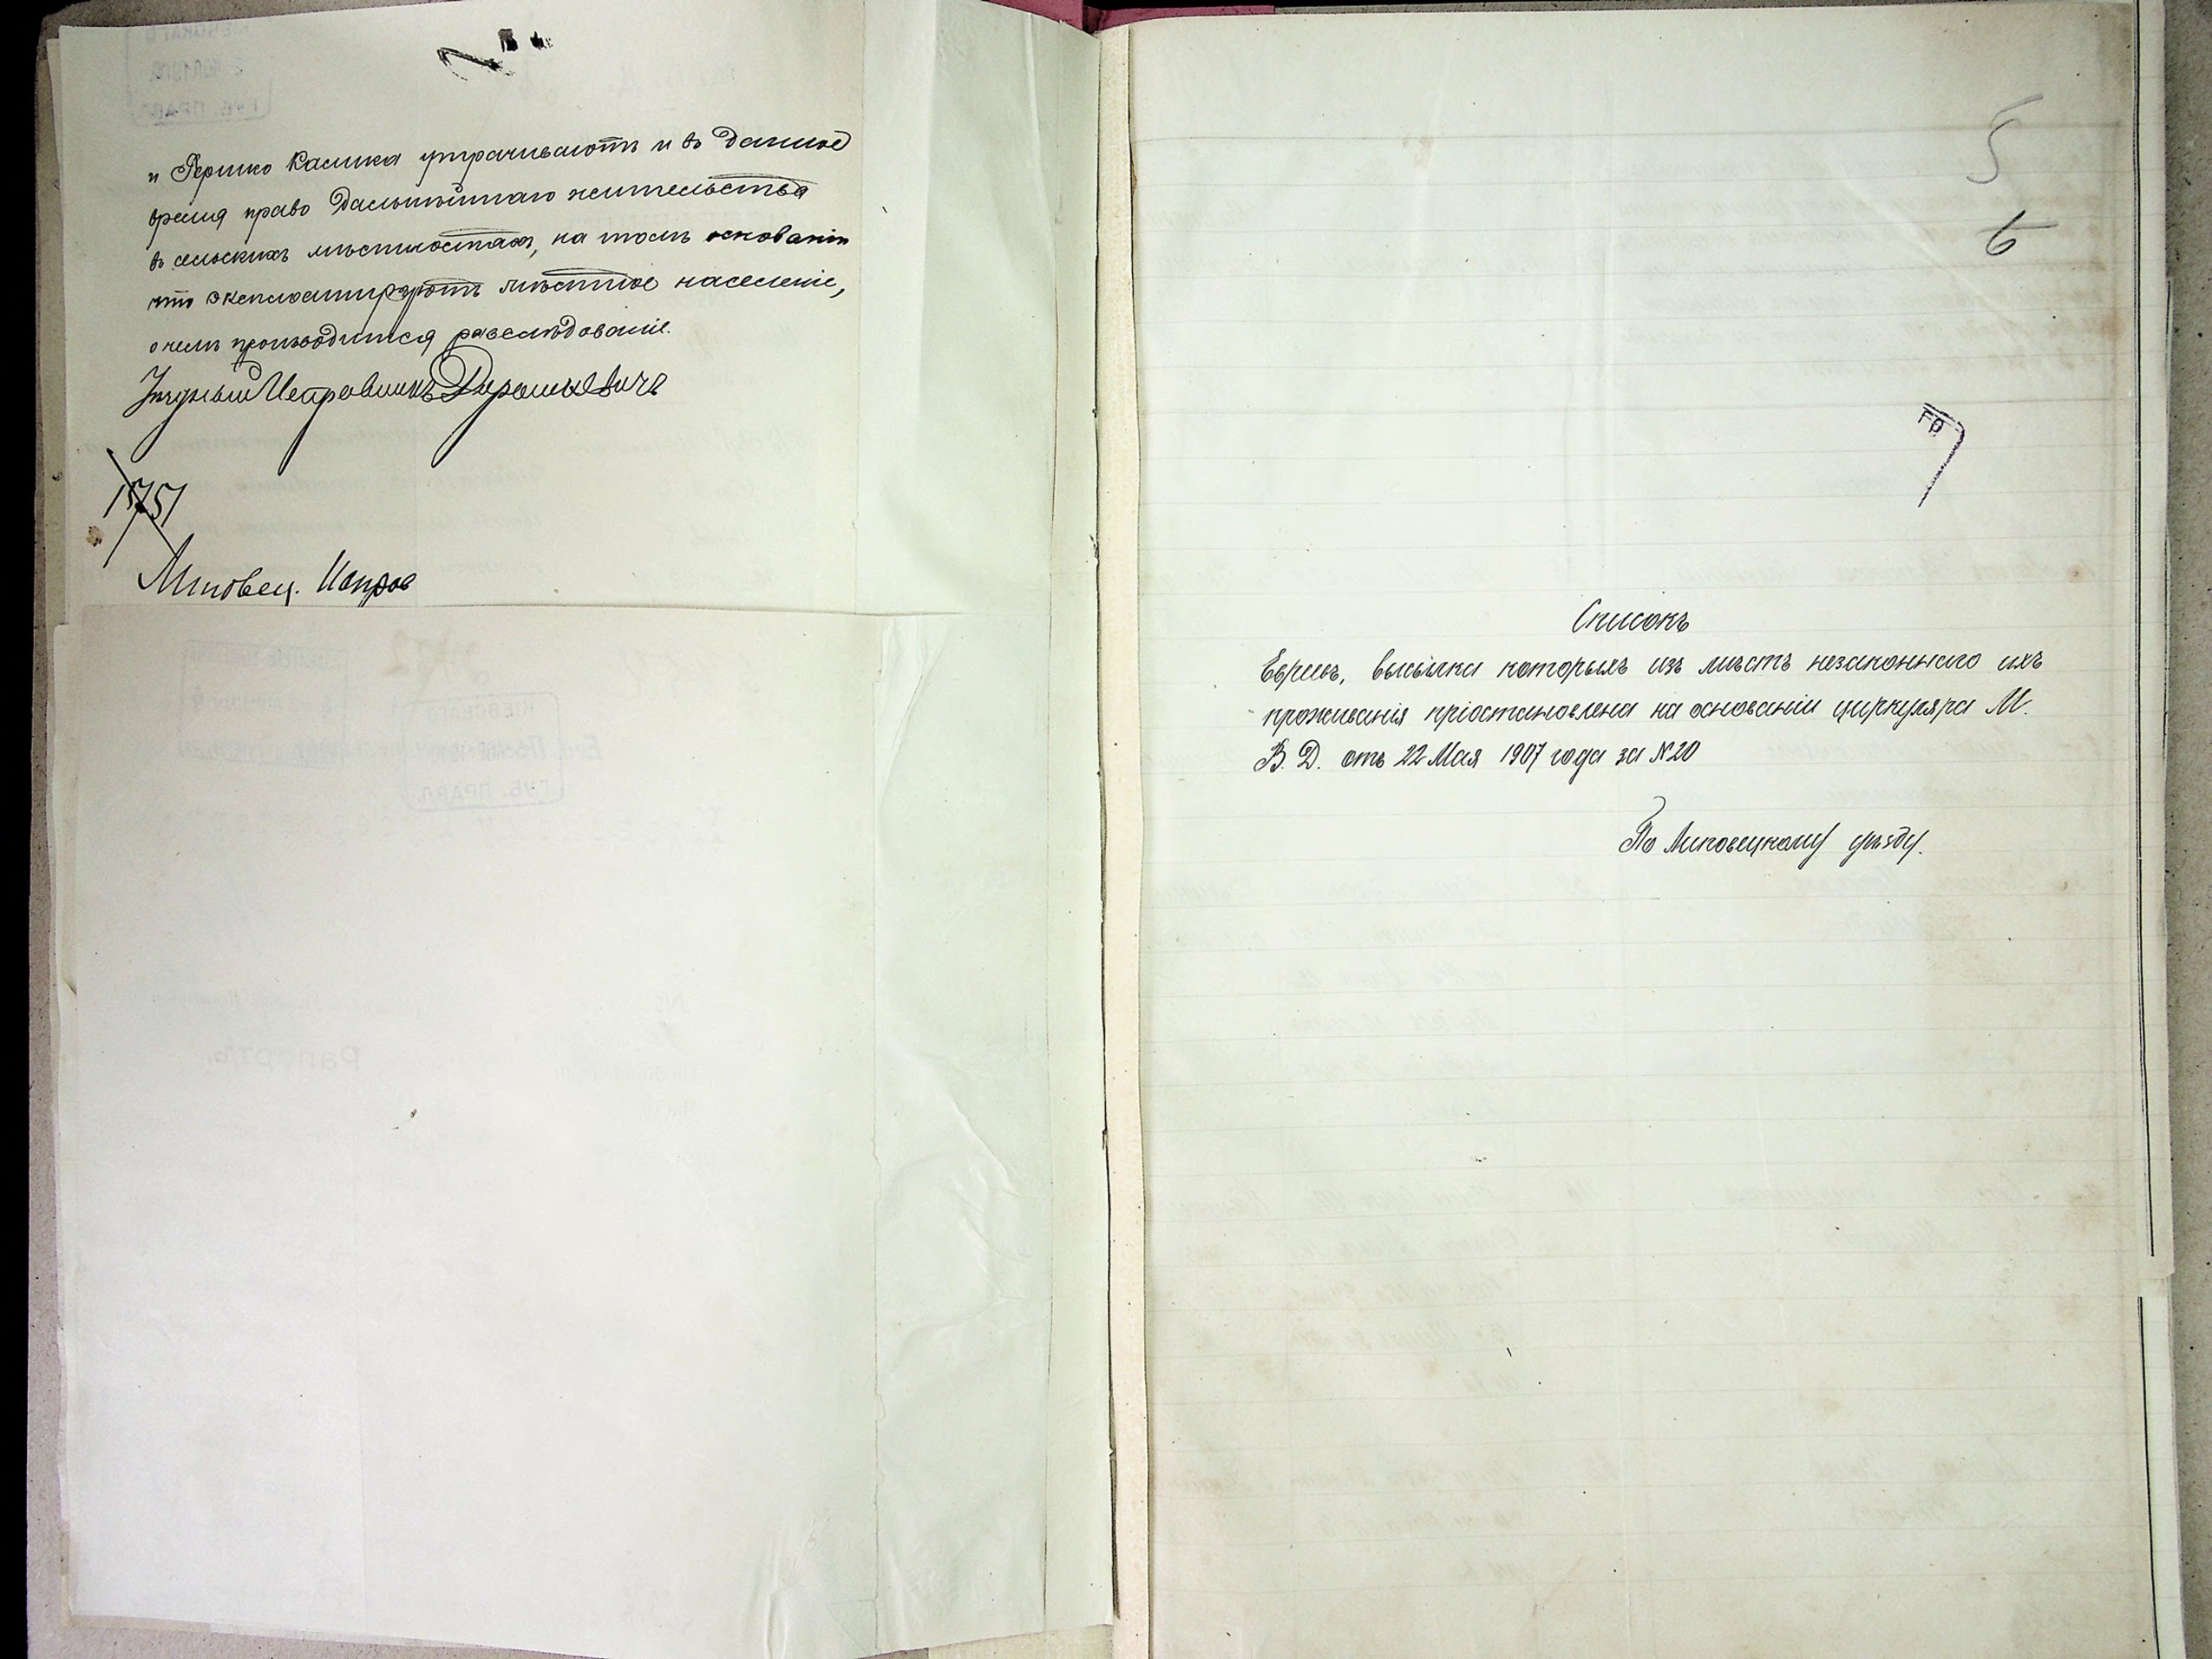 и Гершко Калика утрачиваютъ и въ данное
время право дальнѣйшаго жительства
въ сельскихъ мѣстностяхъ, на томъ основаніи
что эксплоатируютъ мѣстное населеніе,
о чемъ производится разслѣдованіе.
Уѣздный Исправникъ
15751
Липовец. Испров
5
6
Списокъ
Евреевъ, высылка которыхъ изъ мѣстъ незаконнаго ихъ
проживанія пріостановлена на основаніи циркуляра М.
В. Д. отъ 22 Мая 1907 года за №20
По Липовецкому уѣзду.